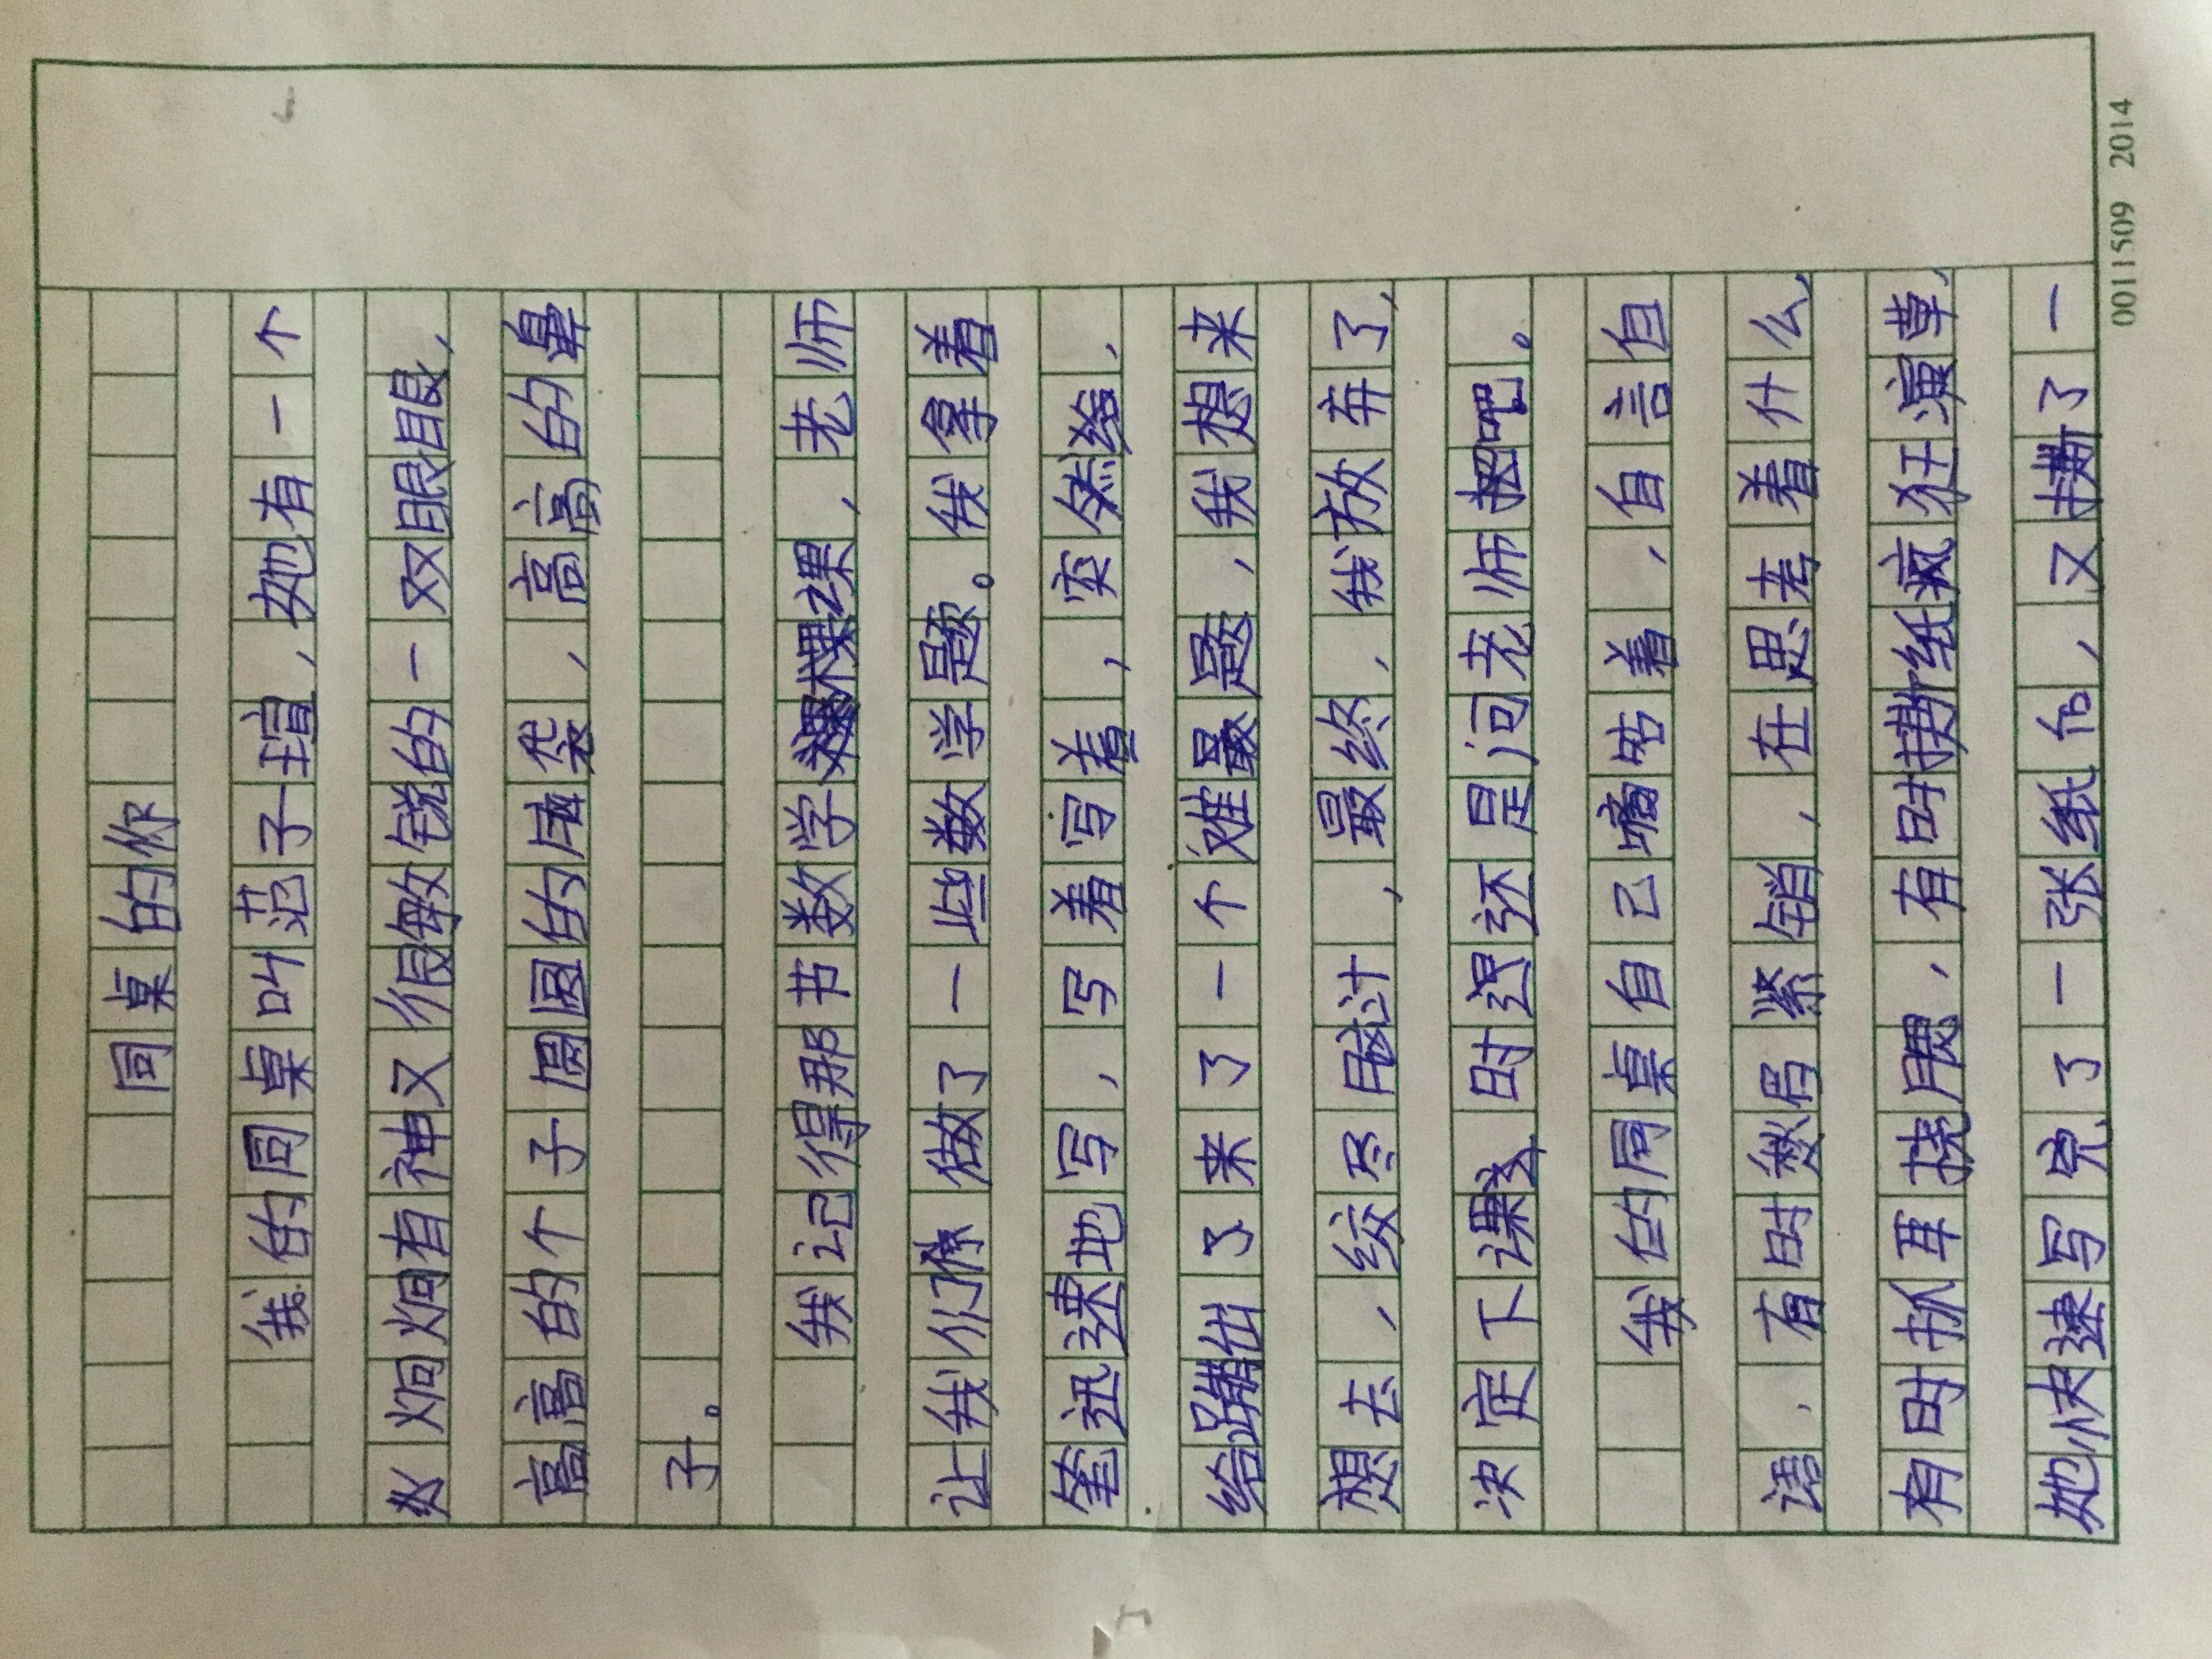 同桌的你
我的同桌叫范子瑄，她有一个
炯炯有神又很敏锐的一双眼眼，
高高的个子圆圆的脑袋，高高的鼻
子。
我记得那节数学课，老师
让我们做了一些数学题。我拿着
笔迅速地写，写着写着，突然给，
给蹦出了来了一个难题，我想来
想去，绞尽脑汁，最终，我放弃了，
决定下课时还是问老师吧。
我的同桌自己嘀咕着，自言自
语，有时愁眉紧锁，在思考着什么，
有时抓耳挠腮，有时撕纸疯狂演草，
她快速写完了一张纸后，又撕了一
0011509 2014